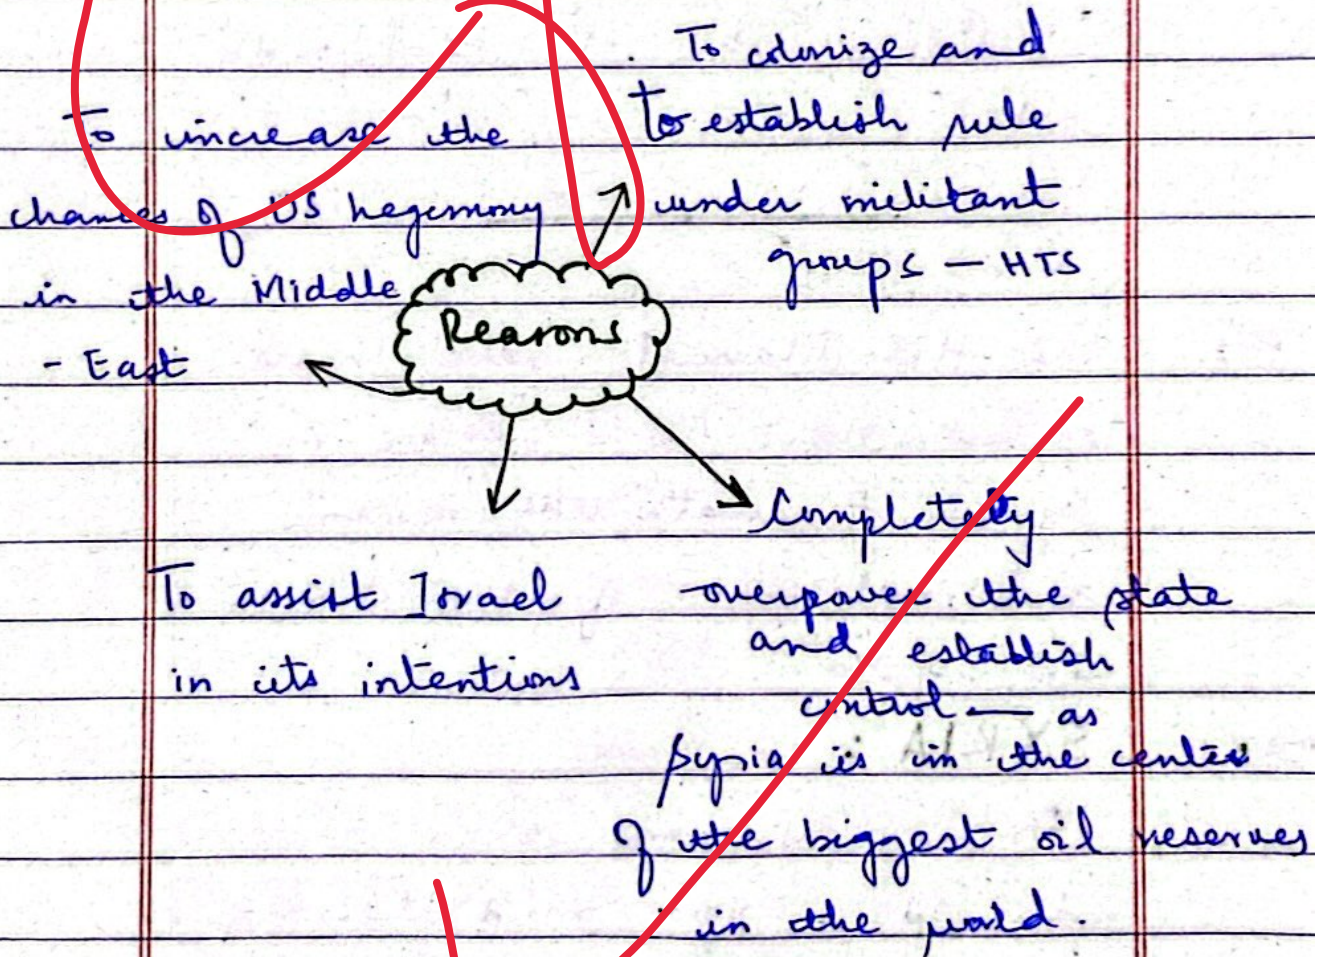 To increase the
chances of US hegemony
in the Middle
- East
. To colonize and
to establish rule
under militant
groups - HTS
Reasons
To assist Israel
in its intentions
Completely
overpower the state
and establish
control — as
Syria is in the center
of the biggest oil reserves
in the world.